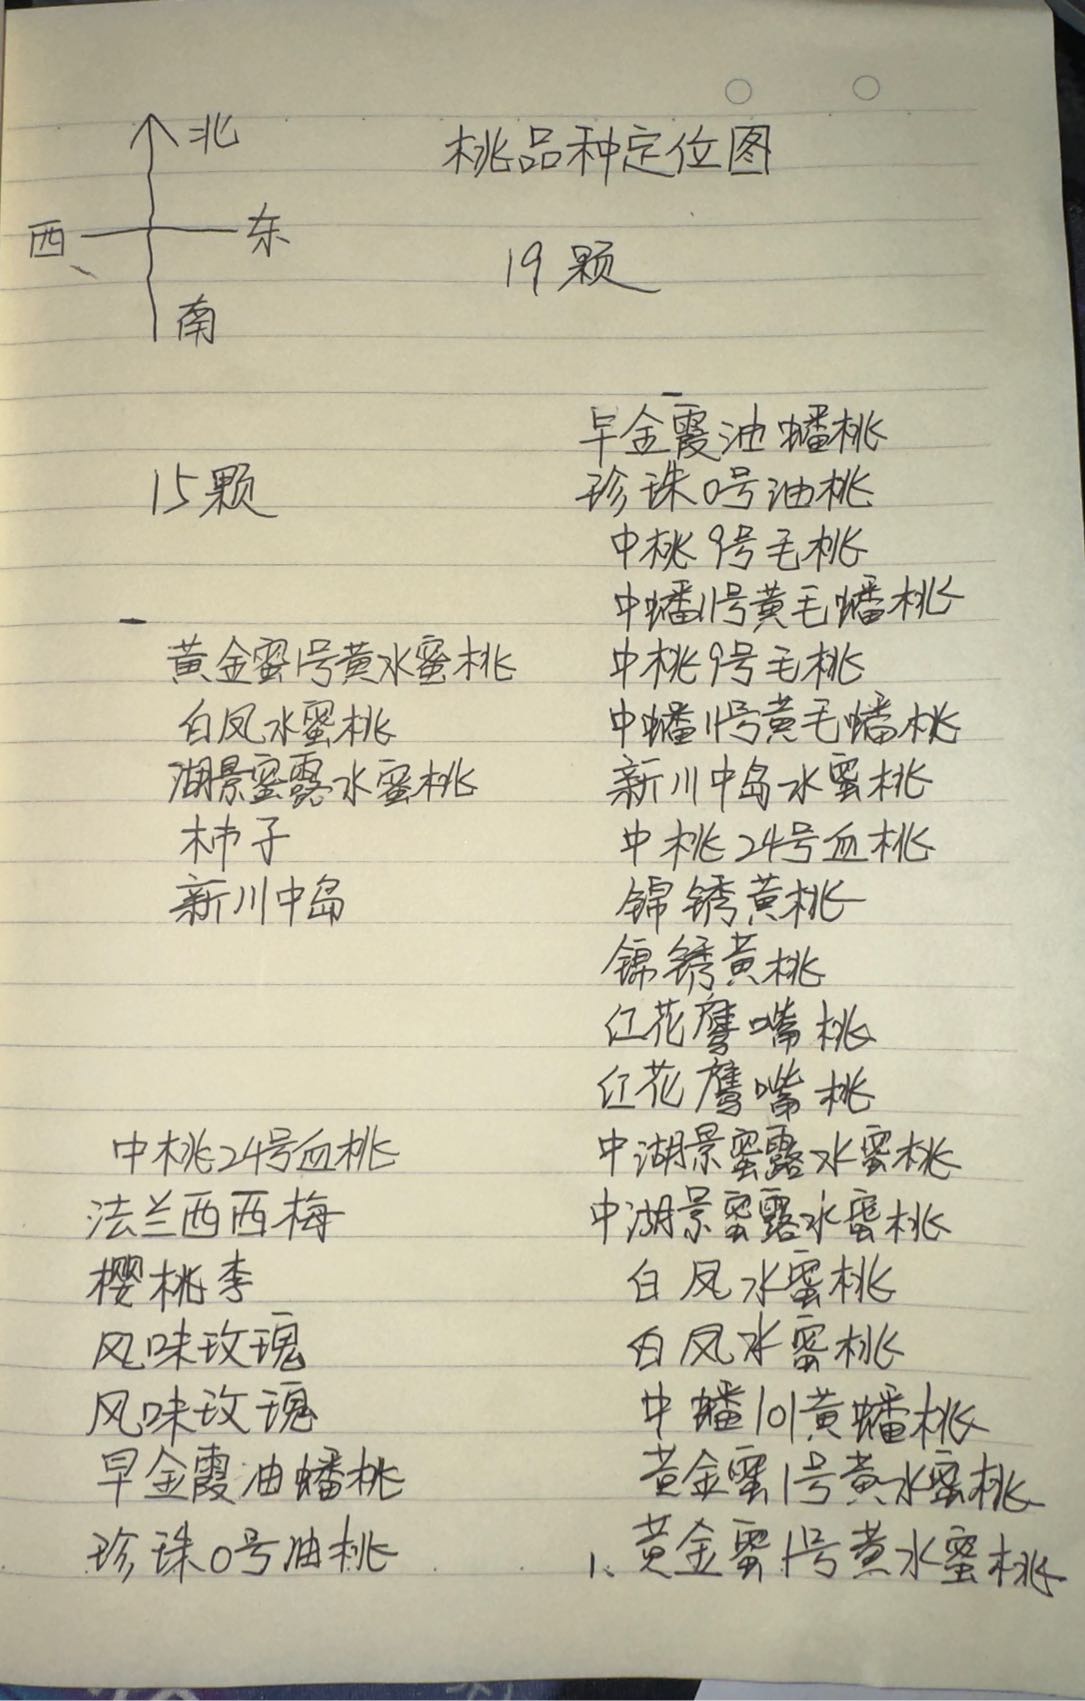 北
桃品种定位图
西 东
19颗
南
15颗
早金霞油蟠桃
珍珠0号油桃
中桃9号毛桃
中蟠11号黄毛蟠桃
中桃9号毛桃
中蟠11号黄毛蟠桃
新川中岛水蜜桃
中桃24号血桃
锦锈黄桃
锦锈黄桃
红花鹰嘴桃
红花鹰嘴桃
中湖景蜜露水蜜桃
中湖景蜜露水蜜桃
白凤水蜜桃
白凤水蜜桃
中蟠101黄蟠桃
黄金蜜1号黄水蜜桃
1、黄金蜜1号黄水蜜桃
黄金蜜1号黄水蜜桃
白凤水蜜桃
湖景蜜露水蜜桃
柿子
新川中岛
中桃24号血桃
法兰西西梅
樱桃李
风味玫瑰
风味玫瑰
早金霞油蟠桃
珍珠0号油桃